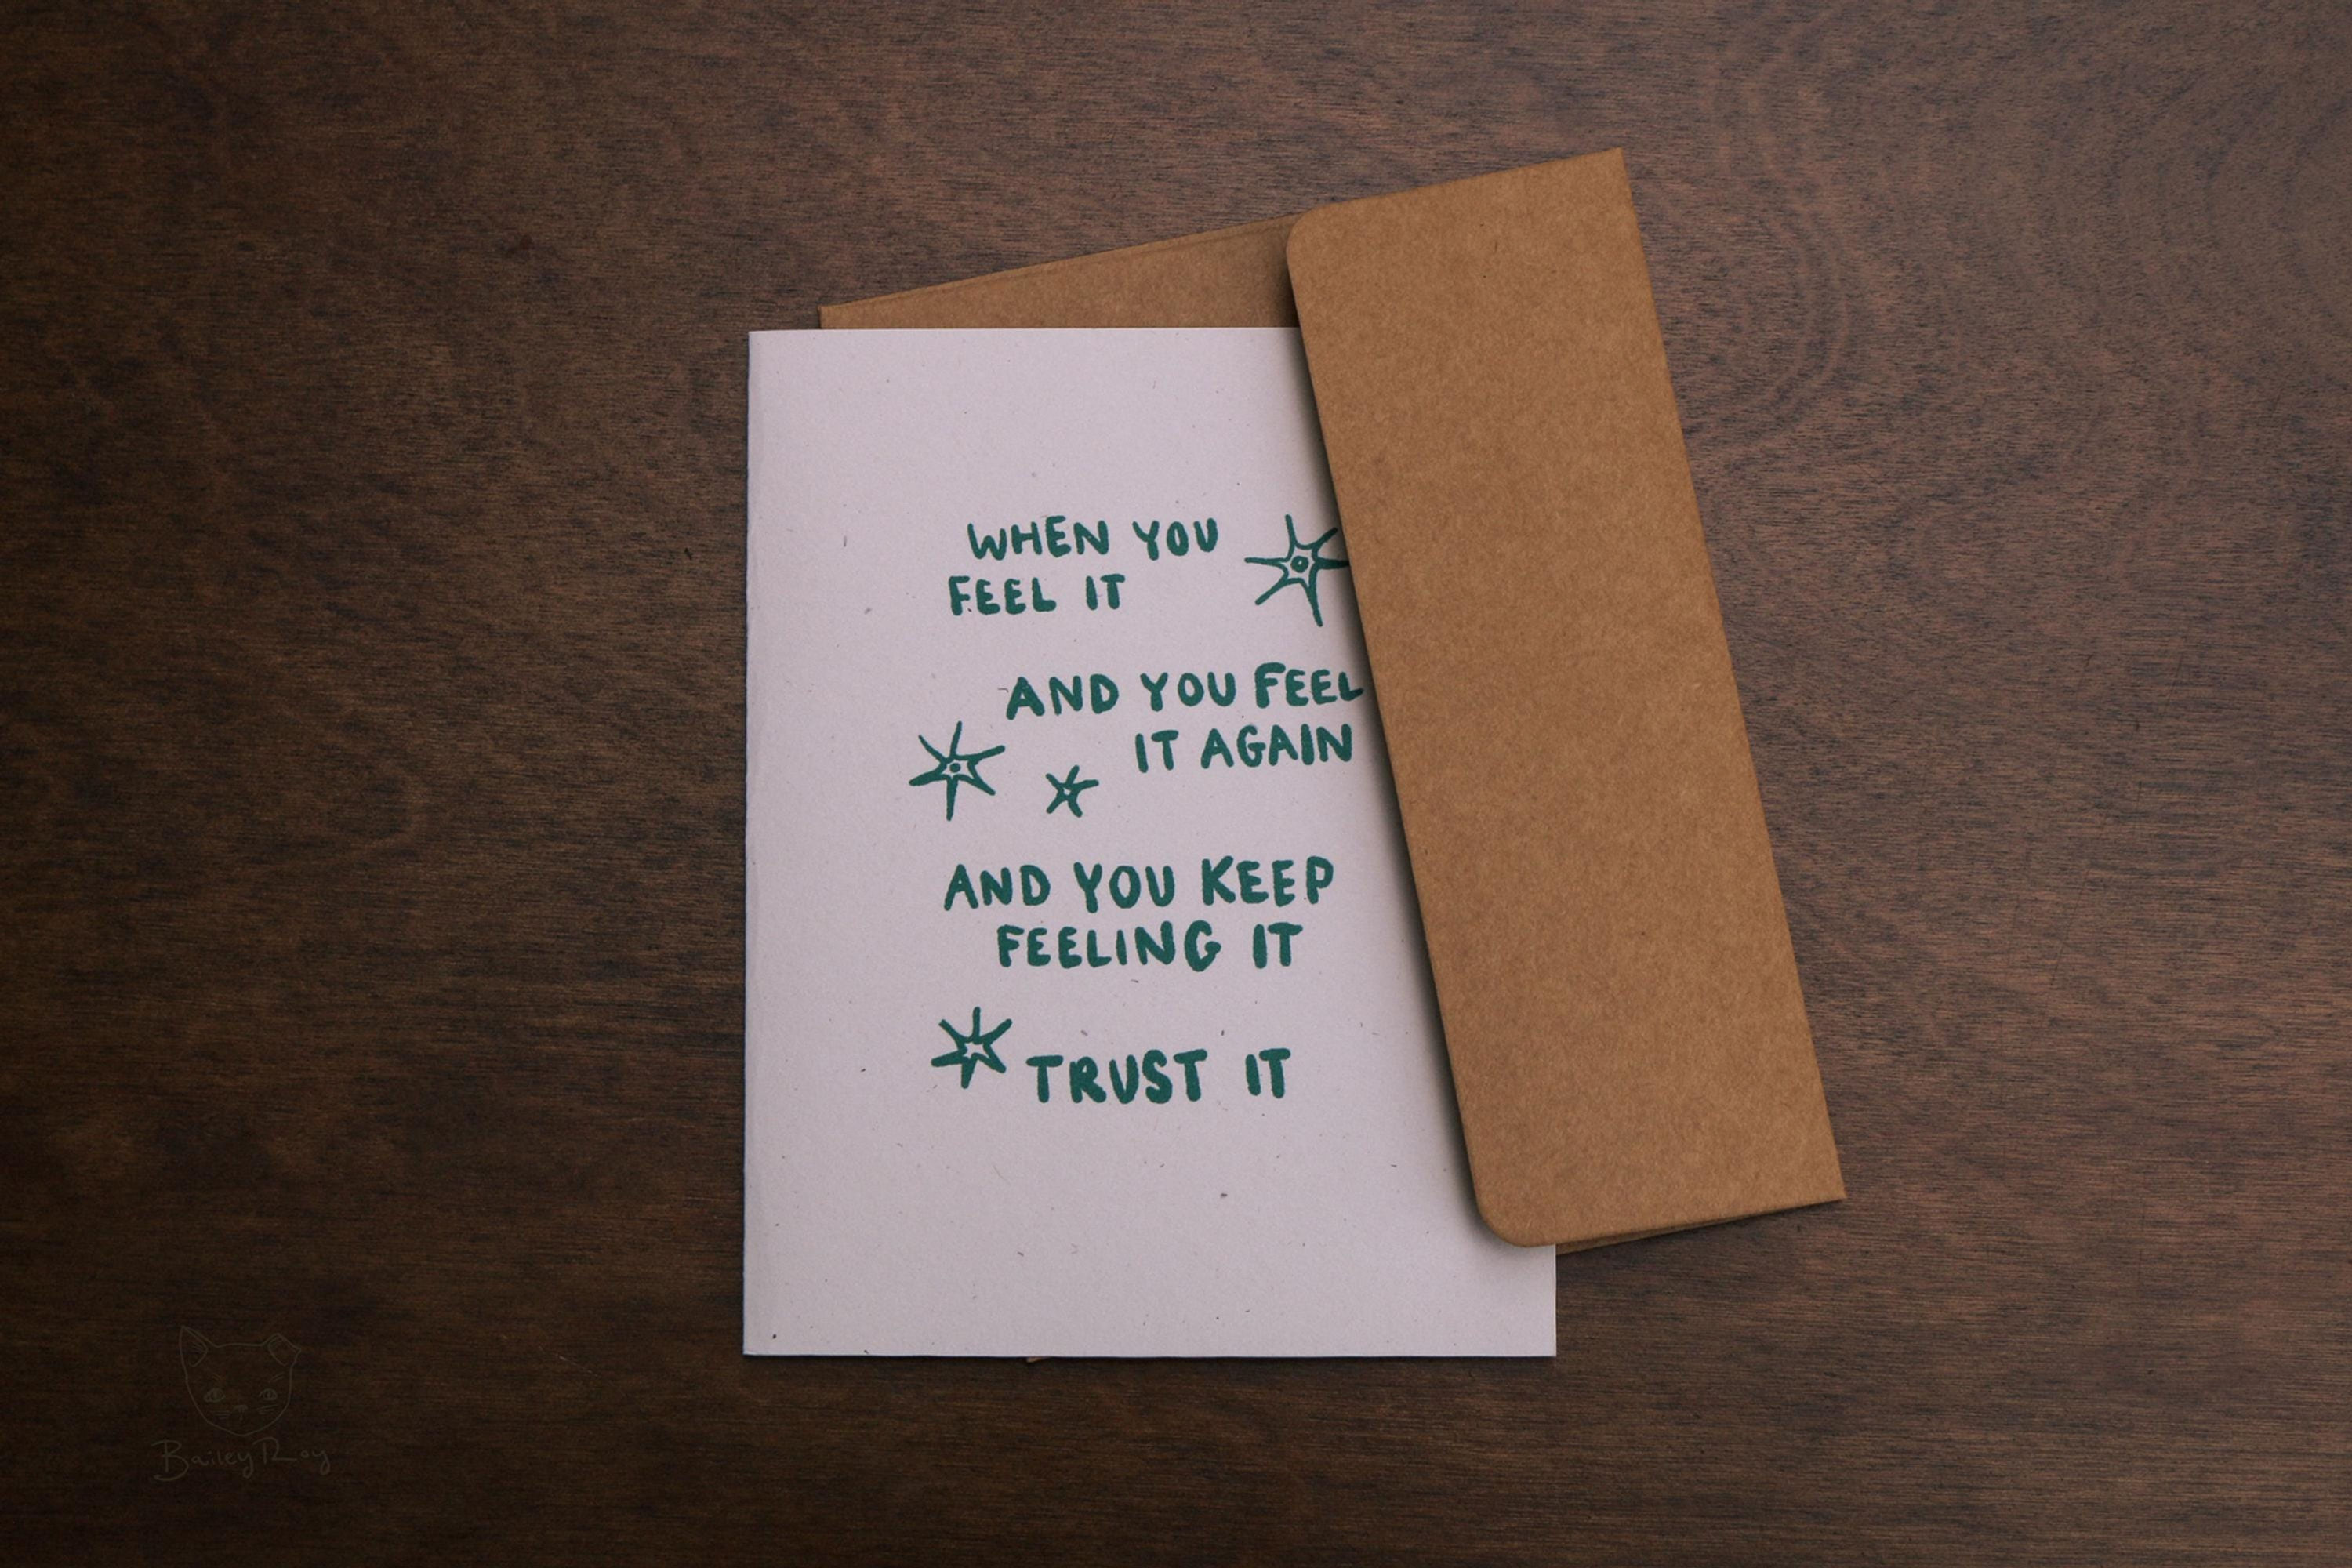 WHEN YOU
FEEL IT
AND YOU FEEL
IT AGAIN
AND YOU KEEP
FEELING IT
TRUST IT
Bailey Roy